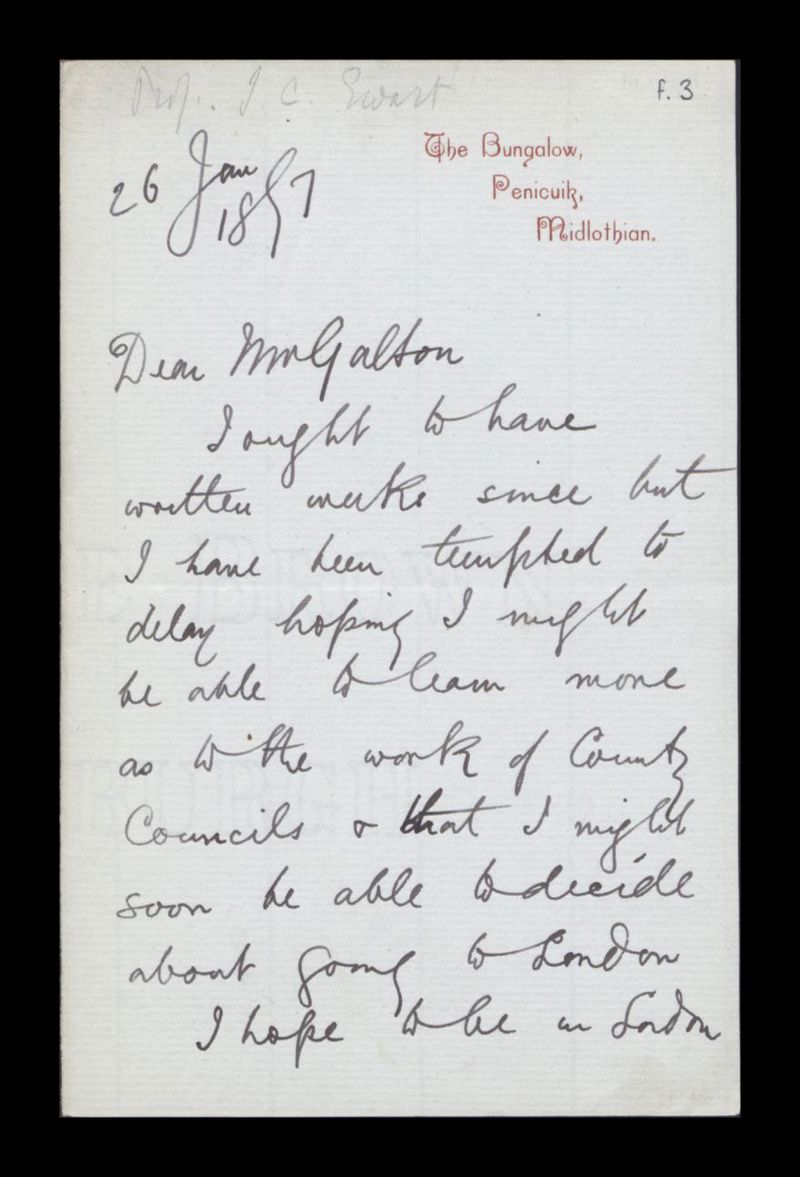 Prof. J. C. Ewart
f. 3
The Bungalow,
Penicuik,
Midlothian.
26 Jan
1897
Dear Mr Galton
I ought to have
written weeks since but
I have been tempted to
delay hoping I might
be able to learn more
as to the work of County
Councils & that I might
soon be able to decide
about going to London
I hope to be in London